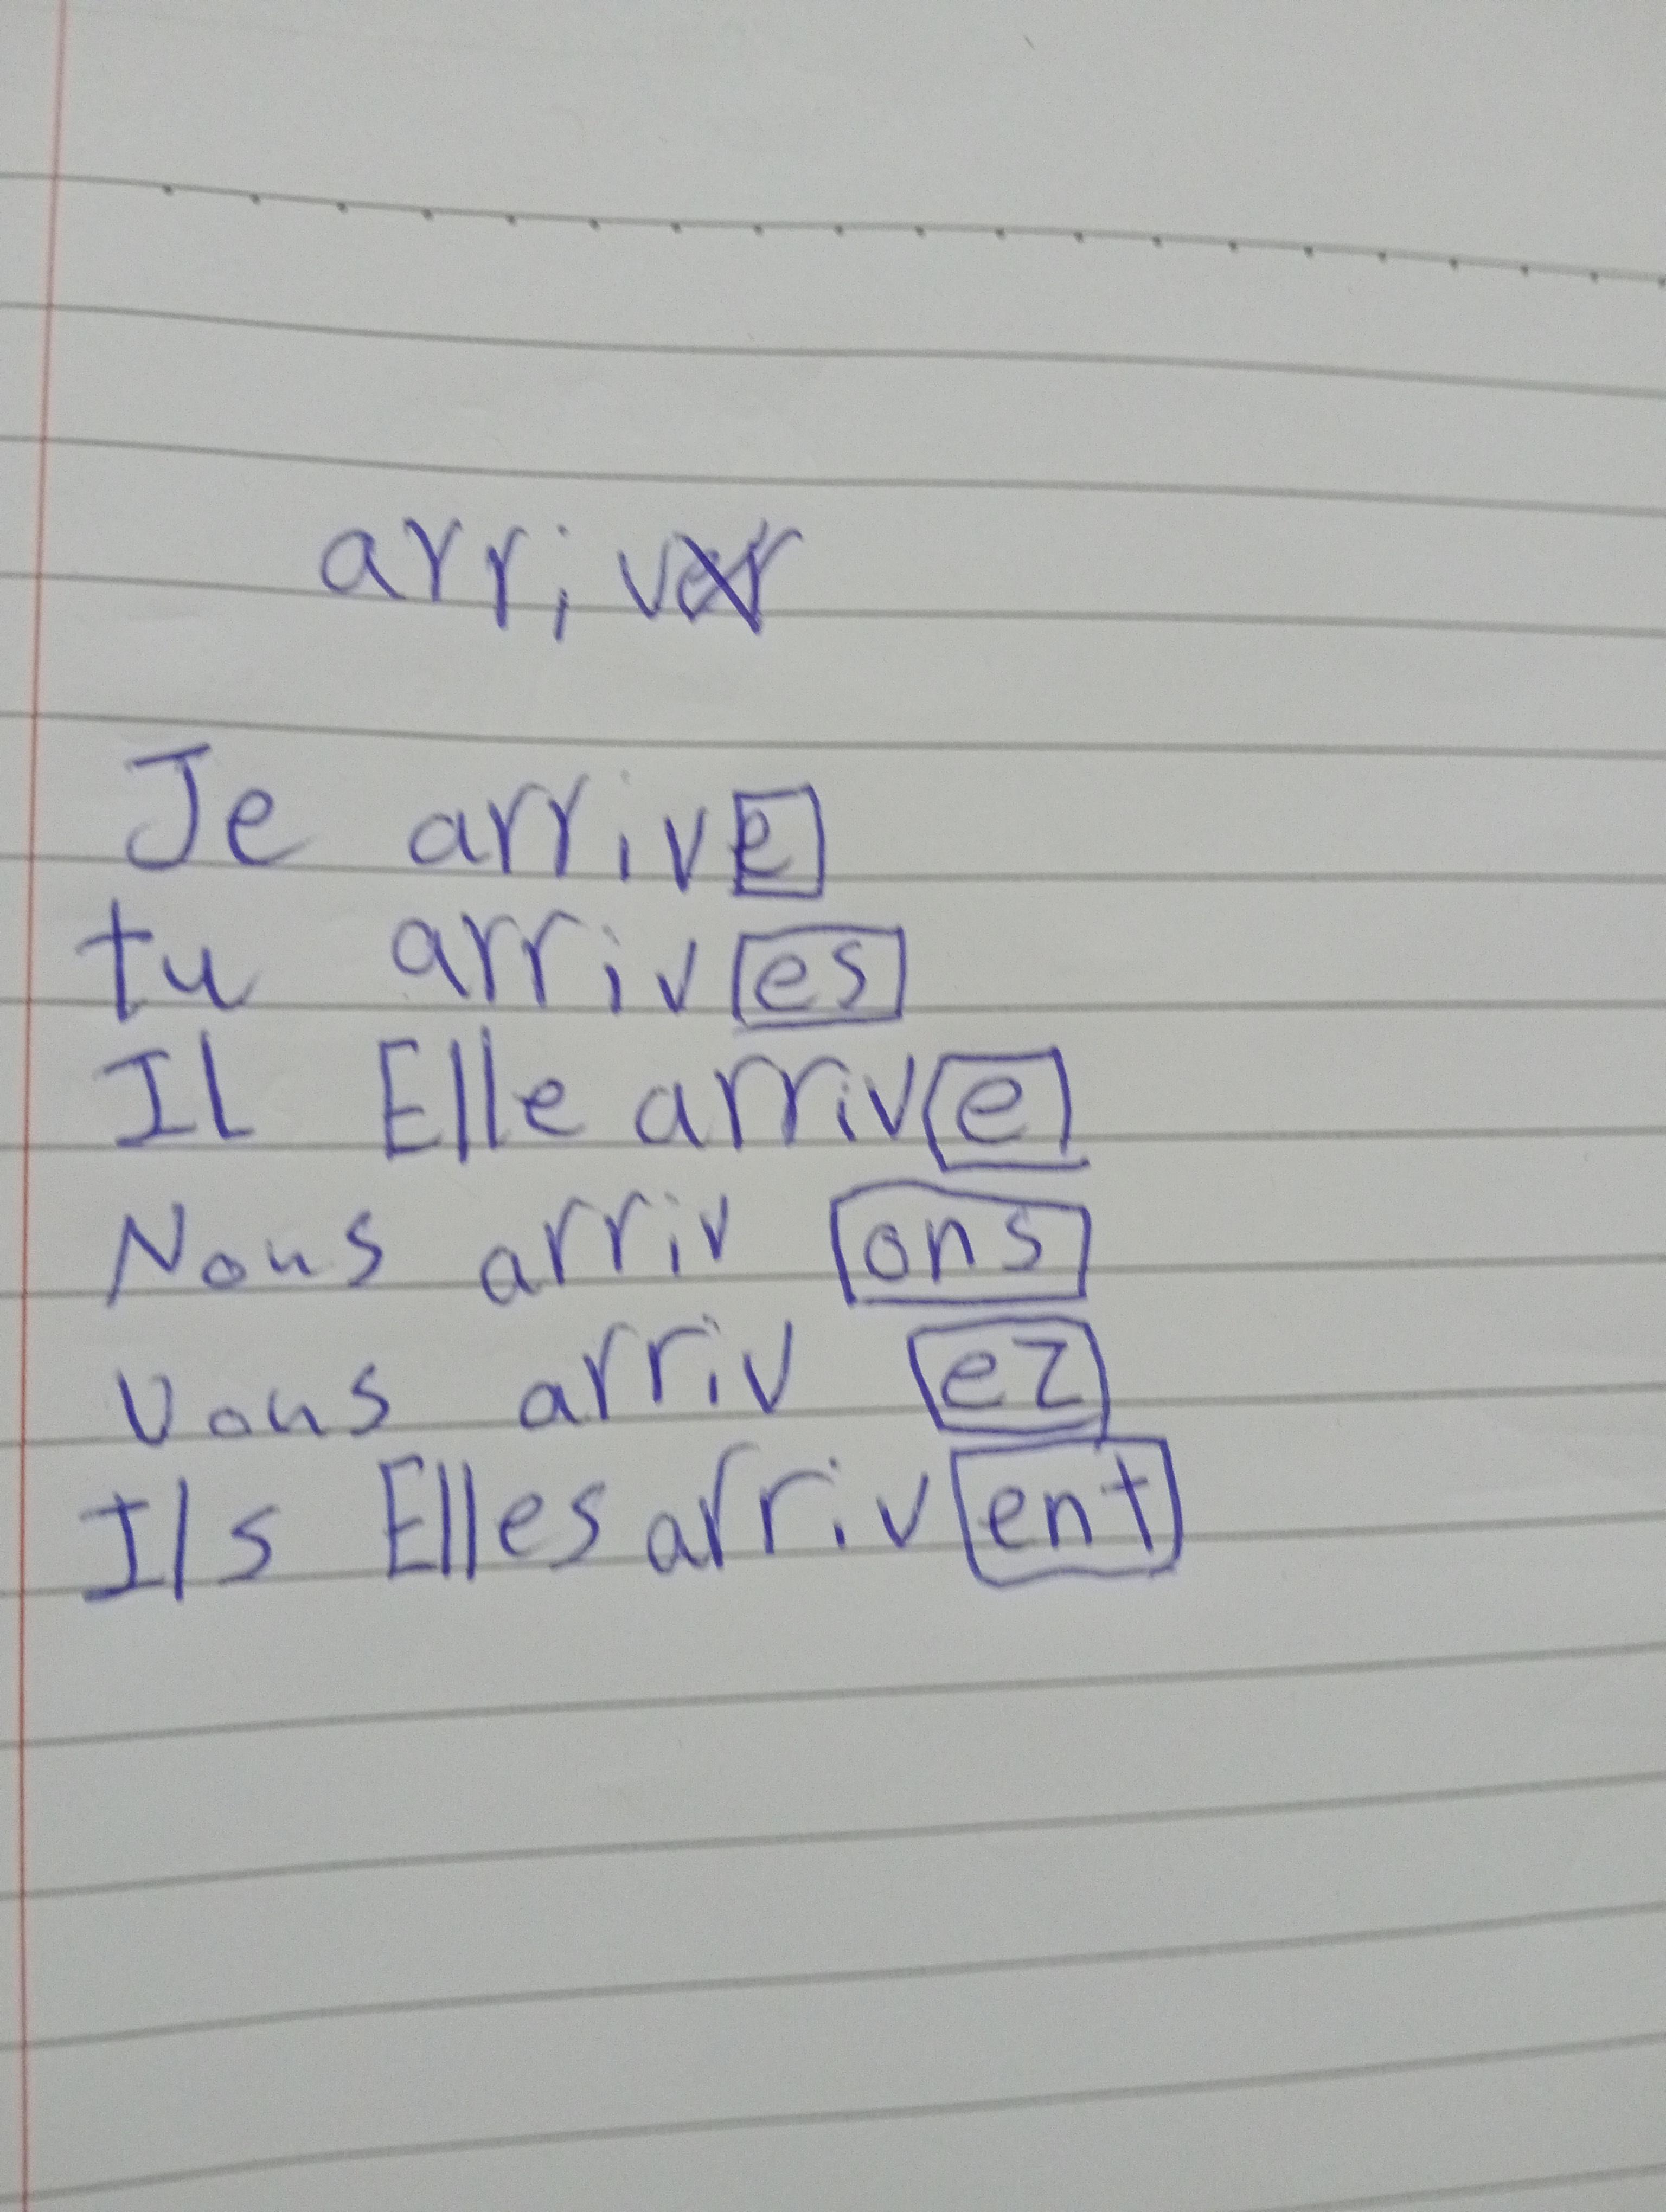 arriver
Je arrive
tu arrives
Il Elle arrive
Nous arriv ons
Vous arriv ez
Ils Elles arrivent